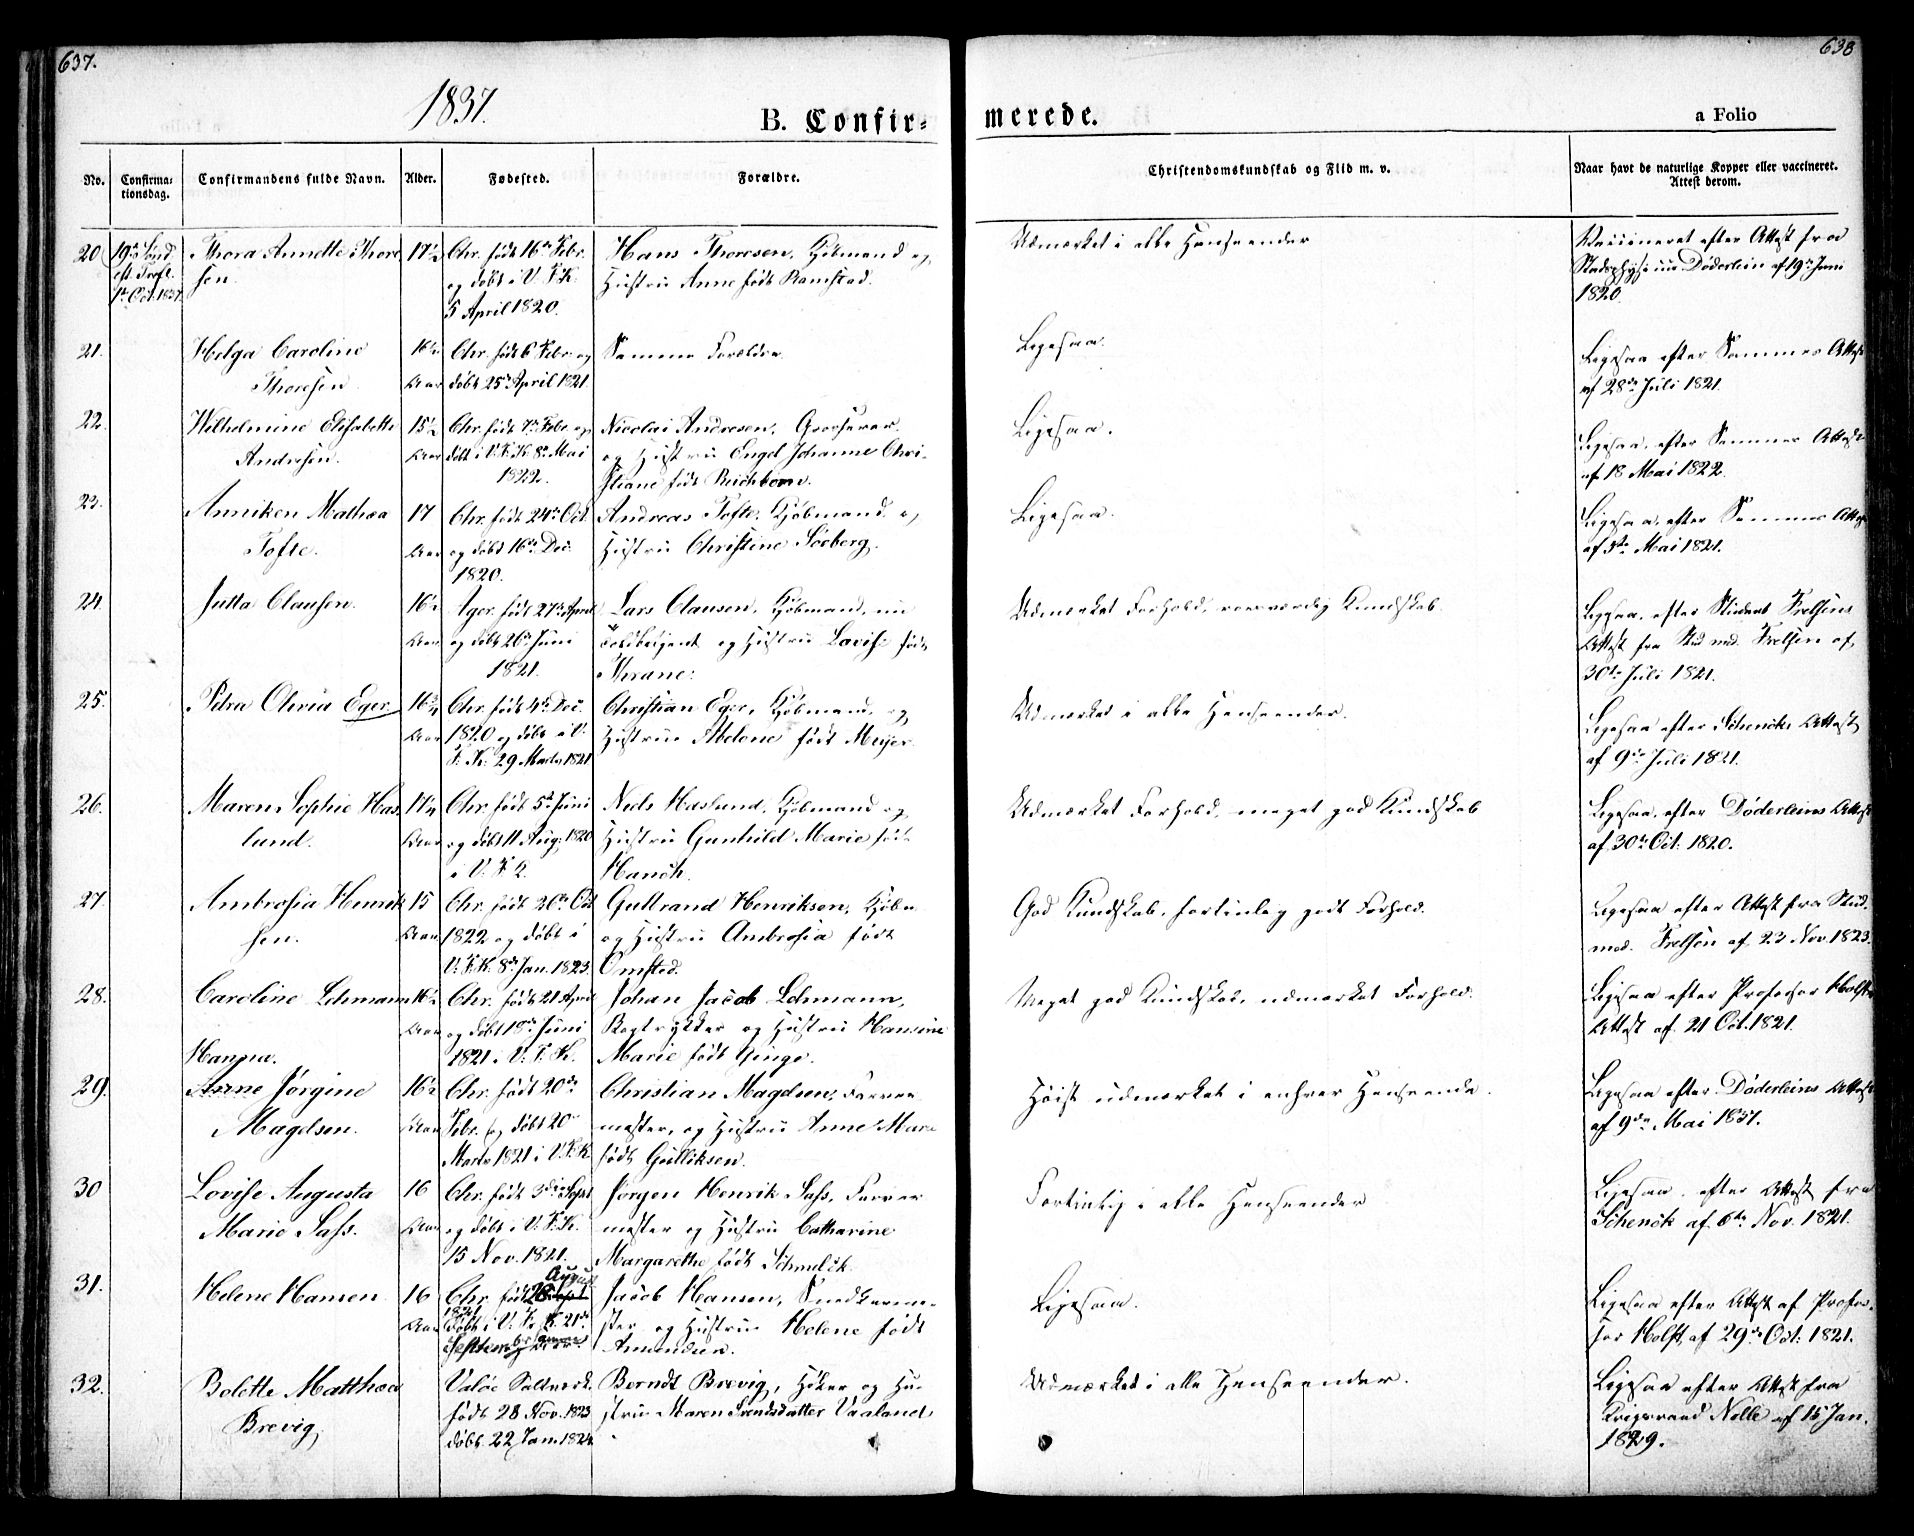 637.
638
1837.
B. Confir-
merede.
a Folio
No.
Confirma-
tionsdag.
Confirmandens fulde Navn.
Alder.
Fødested.
Forældre.
Christendomskundskab og Flid m. v.
Naar havt de naturlige Kopper eller vaccineret.
Attest derom.
20 19de Sønd. Thora Annette Thore 17½ Chr. født 16de Febr. Hans Thoresen, Kjøbmand og Udmærket i alle Henseender Vaccineret efter Attest fra
est Tref. sen. og døbt i V. F. K. Hustru Anne født Ramstad. Stadsphysicus Døderlein af 19de Juni
1ste Oct. 1837. 5 April 1820. 1820.
21. Helga Caroline 16½ Chr. født 6 Febr. og Samme Forældre Ligesaa. Ligesaa efter Sammes Attest
Thoresen Aar døbt 25de April 1821. af 28de Juli 1821.
22. Wilhelmine Elisabette 15½ Chr. født 7de Febr. og Nicolai Andresen, Grosserer Ligesaa. Ligesaa, efter Sammes Attest
Andresen. Aar døbt i V. F. K. 8de Mai og Hustru Engel Johanne Chri- af 18 Mai 1822.
1822. stiane født Reichborn.
23. Anniken Mathea 17 Chr. født 24de Oct. Andreas Tofte, Kjøbmand og Ligesaa. Ligesaa, efter Sammes Attest
Tofte. Aar og døbt 16de Dec. Hustru Christine Seeberg. af 5te Mai 1821.
1820.
24. Jutta Clausen. 16½ Ager. født 27de April Lars Clausen, Kjøbmand, nu Udmærket Forhold, roesværdig Kundskab. Ligesaa, efter Student Frelsens
Aar og døbt 26de Juni og Hustru Lovise født Attest fra Stud. med. Frelsen af
1821. Thrane. 30te Juli 1821.
25. Petra Olivia Eger 16¾ Chr. født 4de Dec. Christian Eger, Kjøbmand og Udmærket i alle Henseender. Ligesaa efter Schencks Attest
Aar 1820 og døbt i V. Hustru Abelone født Meijer. af 9de Juli 1821.
F. K. 29 Marts 1821
26. Maren Sophie Has- 17¼ Chr. født 5te Juni Niels Haslund, Kjøbmand og Udmærket Forhold, meget god Kundskab Ligesaa, efter Døderleins Attest
lund. Aar og døbt 11 Aug: 1820 Hustru Gunhild Marie født af 30te Oct. 1820.
i V. F. K. Hansch.
27. Ambrosia Henrik 15 Chr. født 20de Oct Gulbrand Henriksen, Kjøbm. God Kundskab, fortrinlig godt Forhold. Ligesaa efter Attest fra Stud.
sen. Aar 1822 og døbt i og Hustru Ambrosia født med. Frelsen af 23 Nov. 1823.
V. F. K. 8de Jan. 1823. Omsted.
28. Caroline Lehmann 16½ Chr. født 21 April Johan Jacob Lehmann, Meget god Kundskab, udmærket Forhold. Ligesaa efter Professor Holsts
Aar og døbt 19de Juni Bogtrykker og Hustru Hansine Attest af 21 Oct. 1821.
1821 i V. F. K. Marie født Ginge.
Hanna.
29. Anne Jørgine 16½ Chr. født 20de Christian Magelsen, Farver- Høist udmærket i enhver Henseende. Ligesaa efter Døderleins Attest
Magelsen. Aar Febr. og døbt 20de mester, og Hustru Anne Marie af 9de Mai 1837.
Marts 1821 i V. F. K. født Gulliksen.
30 Lovise Augusta 16 Chr. født 3die Sept Jørgen Henrik Sass, Farver- Fortrinlig i alle Henseender Ligesaa, efter Attest fra
Marie Sass. Aar og døbt i V. F. K. mester og Hustru Catharine Schenck af 6te Nov. 1821.
15 Nov. 1821. Margarethe født Schmelck.
August
31. Helene Hansen 16 Chr. født 28 Sept Jacob Hansen, Snedkerme- Ligesaa. Ligesaa efter Attest af Profes-
1821
Aar døbt i V. F. K. 21de ster og Hustru Helene født sor Holst, af 29de Oct. 1821.
September Amundsen.
32. Bolette Matthea Valøe Saltverk. Berndt Brevig, Høker og Hu- Udmærket i alle Henseender. Ligesaa efter Attest fra
Brevig, født 28 Nov. 1823 stru Maren Svendsdatter Vaaland Krigsraad Nolle af 15 Jan.
døbt 22 Jan. 1824. 1829.